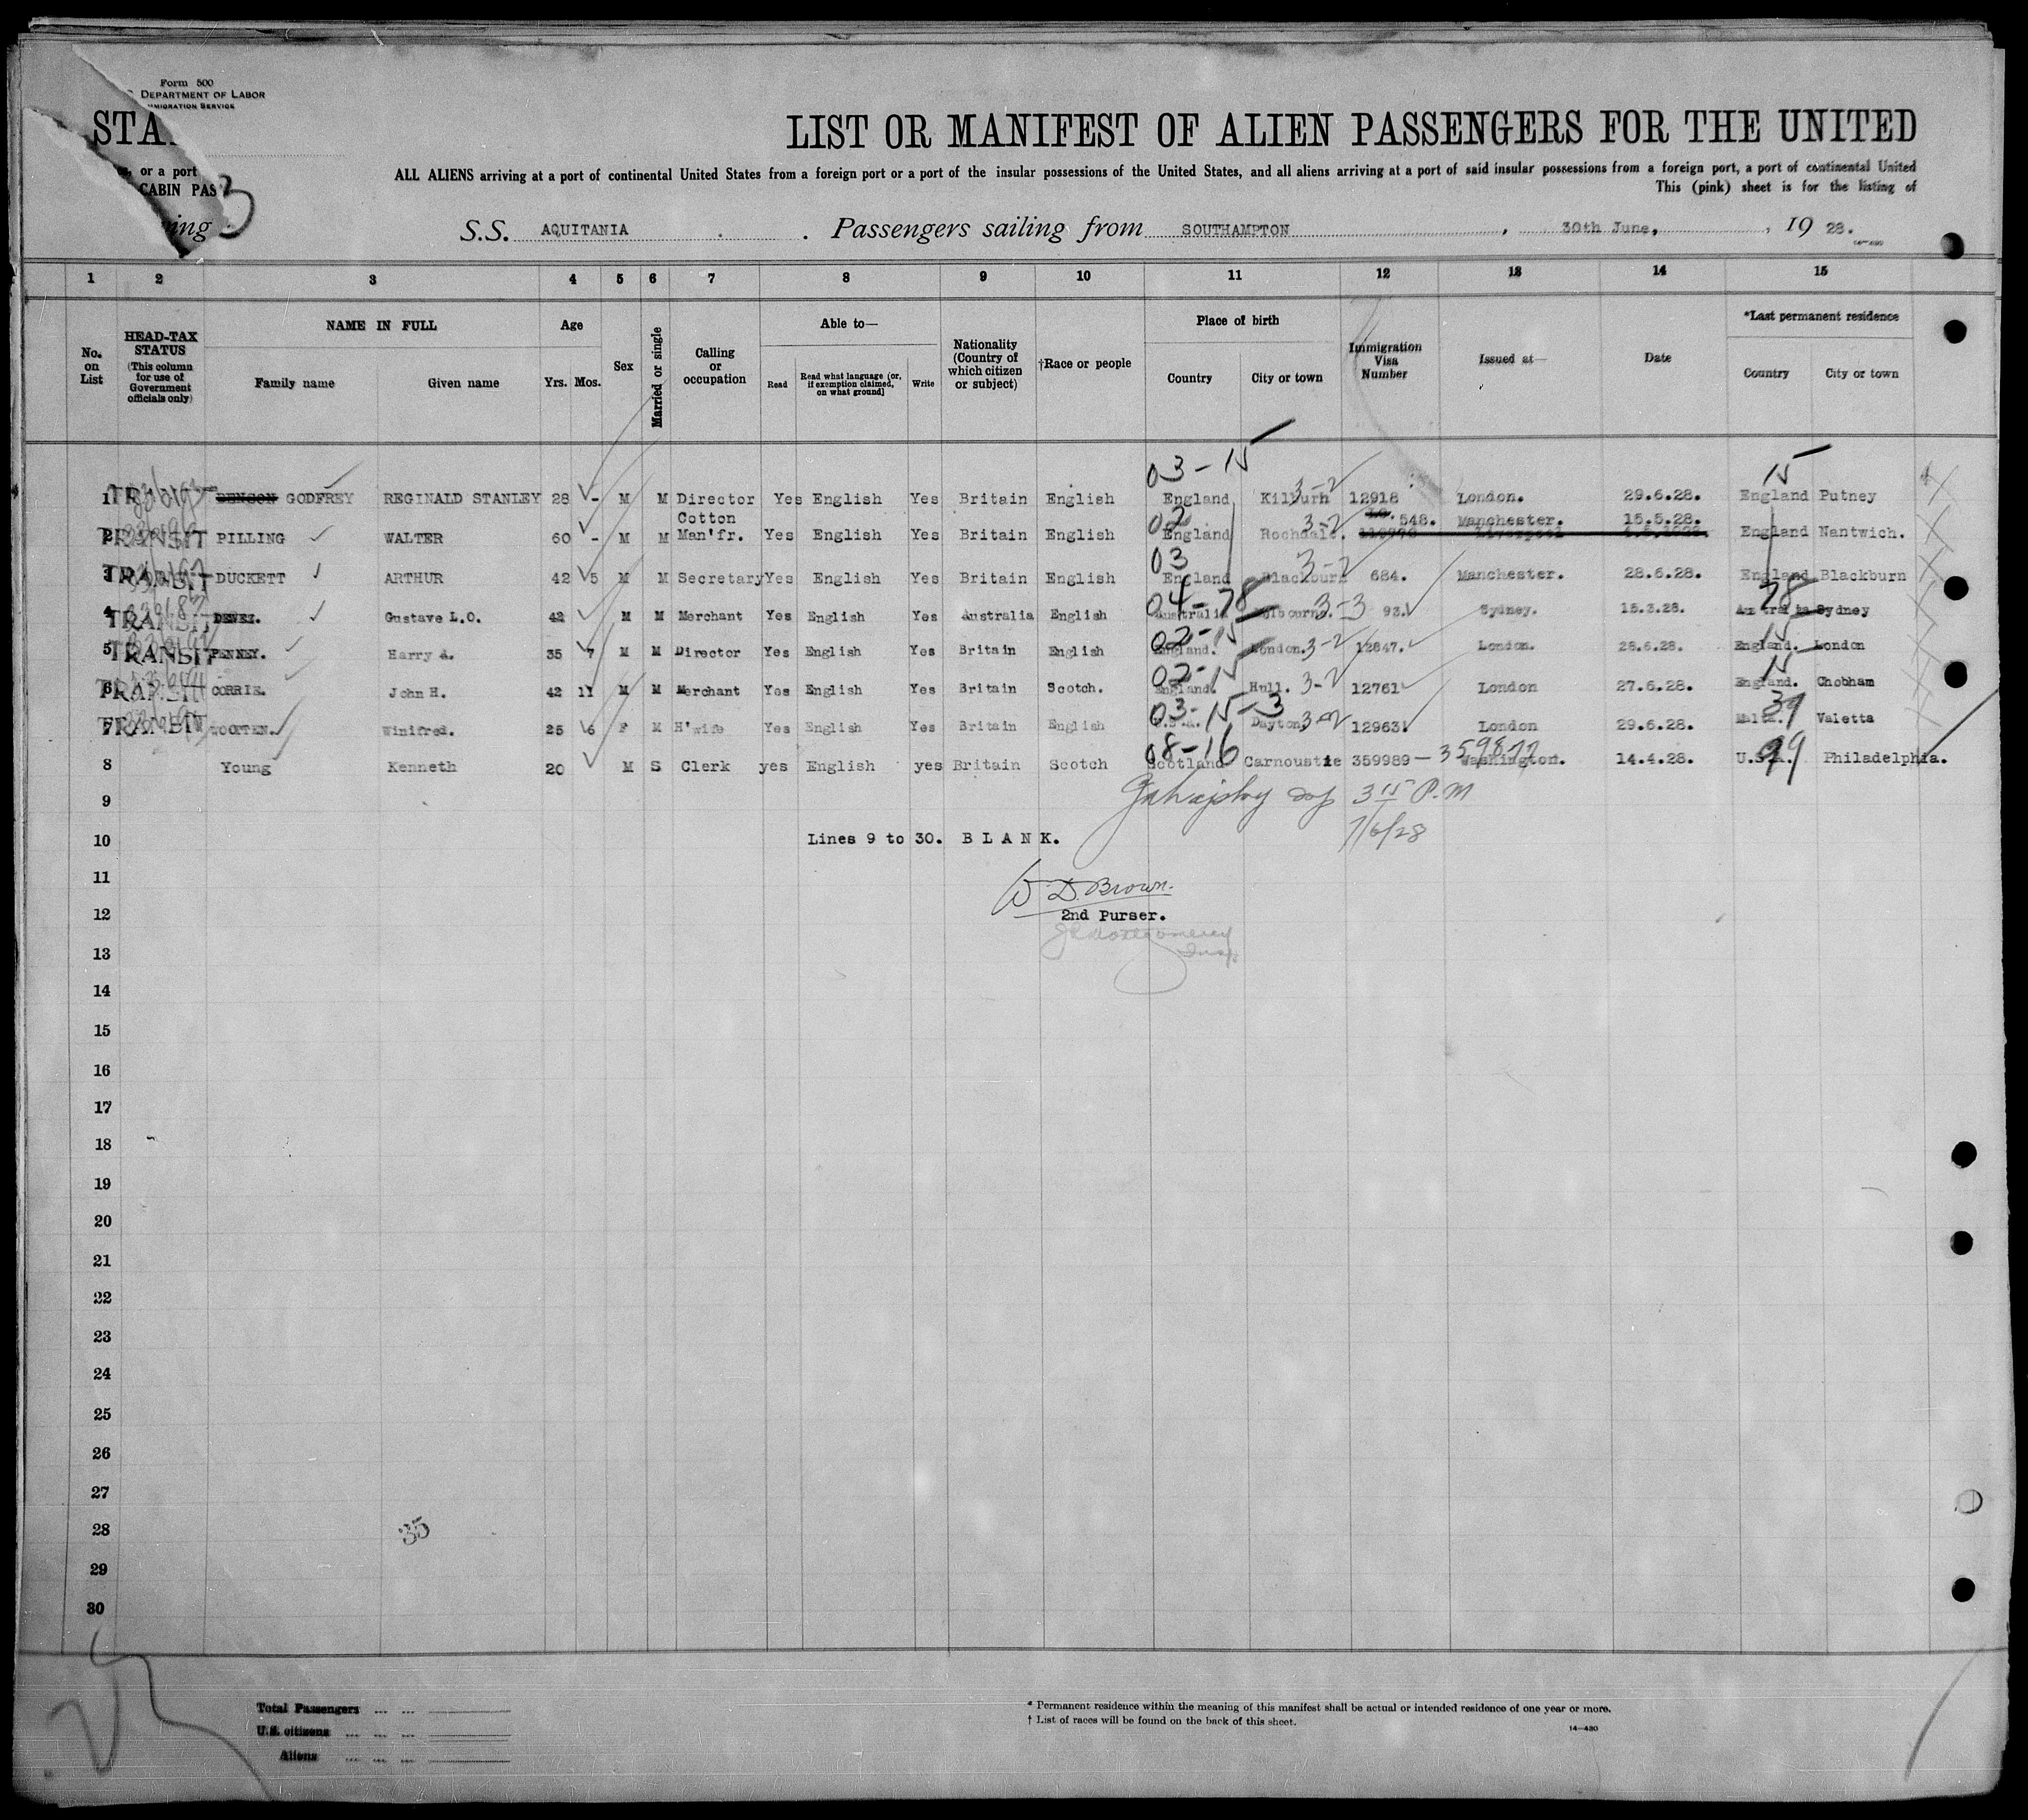 Form 500
DEPARTMENT OF LABOR
IMMIGRATION SERVICE
STA
LIST OR MANIFEST OF ALIEN PASSENGERS FOR THE UNITED
or a port
ALL ALIENS arriving at a port of continental United States from a foreign port or a port of the insular possessions of the United States, and all aliens arriving at a port of said insular possessions from a foreign port, a port of continental United
CABIN PAS 3
This (pink) sheet is for the listing of
S.S. AQUITANIA . Passengers sailing from SOUTHAMPTON , 30th June, , 19 28.
14-430
1 2 3 4 5 6 7 8 9 10 11 12 13 14 15
No. on List
HEAD-TAX STATUS (This column for use of Government officials only)
NAME IN FULL
Family name Given name
Age
Yrs. Mos.
Sex
Married or single
Calling or occupation
Able to—
Read
Read what language (or, if exemption claimed, on what ground)
Write
Nationality (Country of which citizen or subject)
†Race or people
Place of birth
Country City or town
Immigration Visa Number
Issued at—
Date
*Last permanent residence
Country City or town
03-15 15
1 BENSON GODFREY REGINALD STANLEY 28 - M M Director Yes English Yes Britain English England Kilburn 3-2 12918 London. 29.6.28. England Putney
2 TRANSIT PILLING WALTER 60 - M M Cotton Man'fr. Yes English Yes Britain English 02 England Rochdale. 3-2 548. Manchester. 15.5.28. England Nantwich.
3 TRANSIT DUCKETT ARTHUR 42 5 M M Secretary Yes English Yes Britain English 03 England Blackburn 3-2 684. Manchester. 28.6.28. England Blackburn
4 TRANSIT Gustave L.O. 42 M M Merchant Yes English Yes Australia English 04-78 Australia Melbourne. 3-3 93. Sydney. 15.3.28. 78 Australia Sydney
5 TRANSIT PENNEY. Harry A. 35 7 M M Director Yes English Yes Britain English 02-15 England. London. 3-2 12847. London. 28.6.28. 15 England. London
6 TRANSIT CORRIE. John H. 42 11 M M Merchant Yes English Yes Britain Scotch. 02-15 England. Hull. 3-2 12761 London 27.6.28. 15 England. Chobham
7 TRANSIT WOOTTEN. Winifred. 25 6 F M H'wife Yes English Yes Britain English 03-15-3 U.S.A. Dayton 3-2 12963 London 29.6.28. 39 Malta. Valetta
8 Young Kenneth 20 M S Clerk yes English yes Britain Scotch 08-16 Scotland Carnoustie 359989 - 359877 Washington. 14.4.28. U.S.A. 99 Philadelphia.
9 3 15 P.M
7/6/28
10 Lines 9 to 30. B L A N K.
11 W D Brown.
12 2nd Purser.
Montgomery
13 Insp
14
15
16
17
18
19
20
21
22
23
24
25
26
27
28 35
29
30
Total Passengers
U.S. citizens
Aliens
* Permanent residence within the meaning of this manifest shall be actual or intended residence of one year or more.
† List of races will be found on the back of this sheet.
14-430